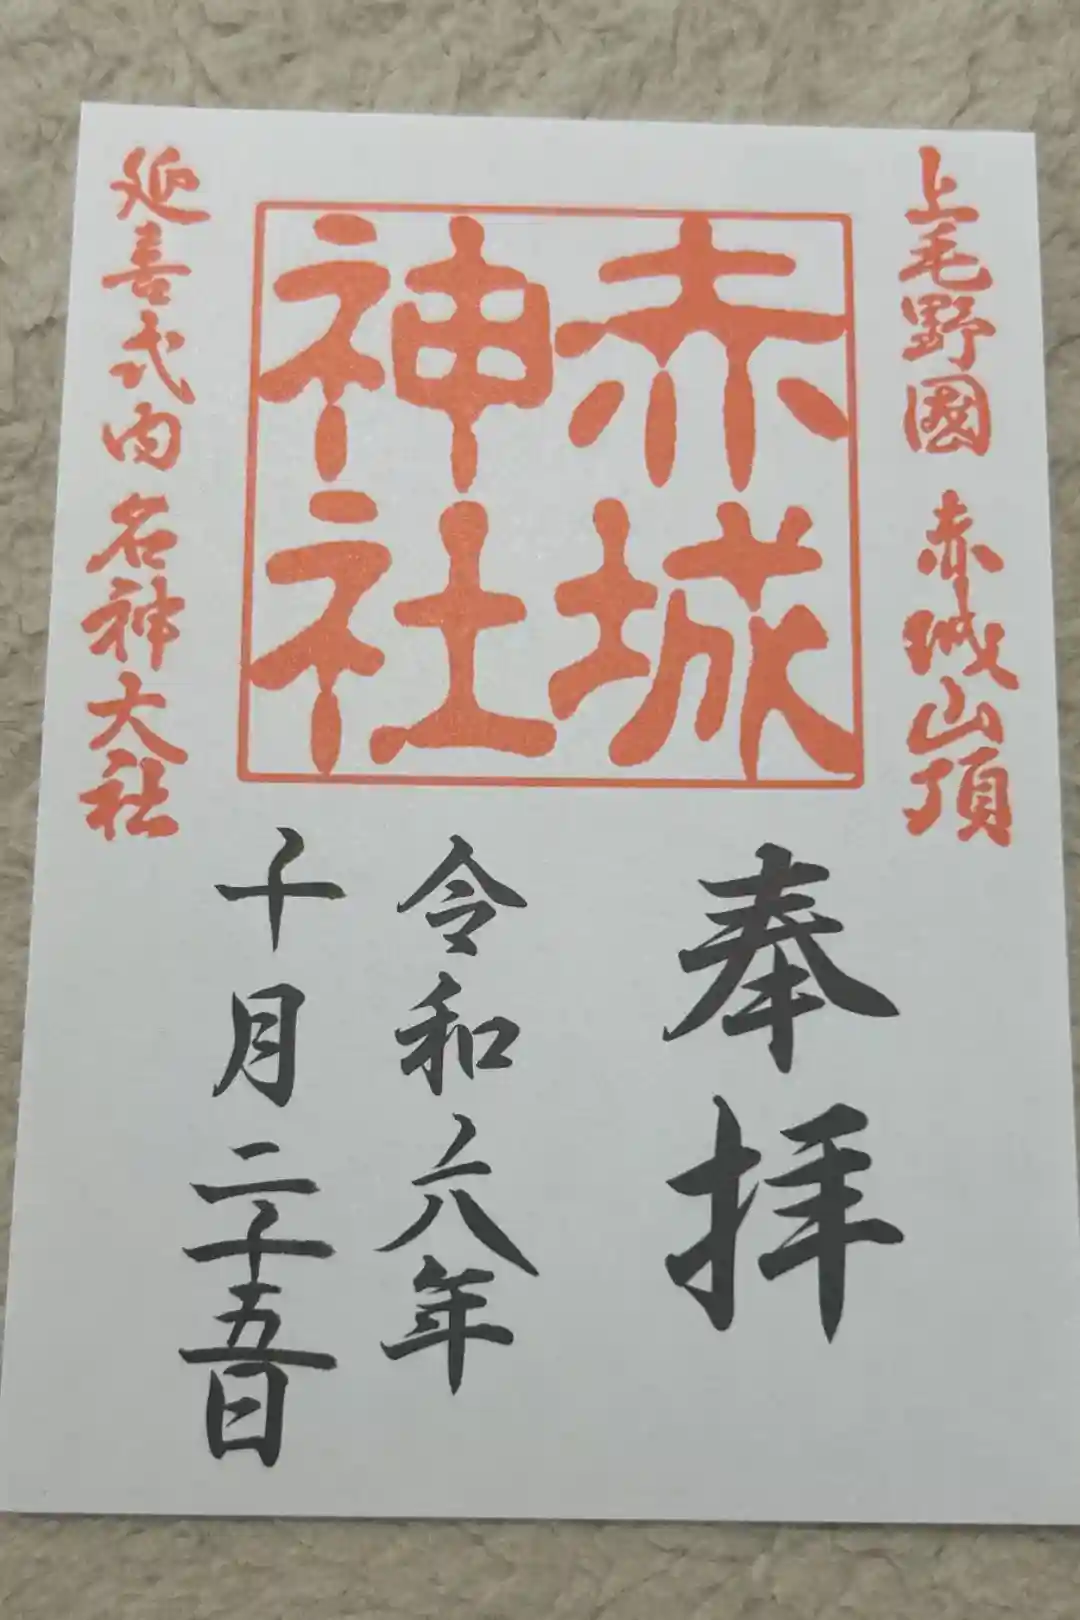 上毛野國 赤城山頂
赤城
神社
延喜式内 名神大社
奉拝
令和六年
十月二十五日